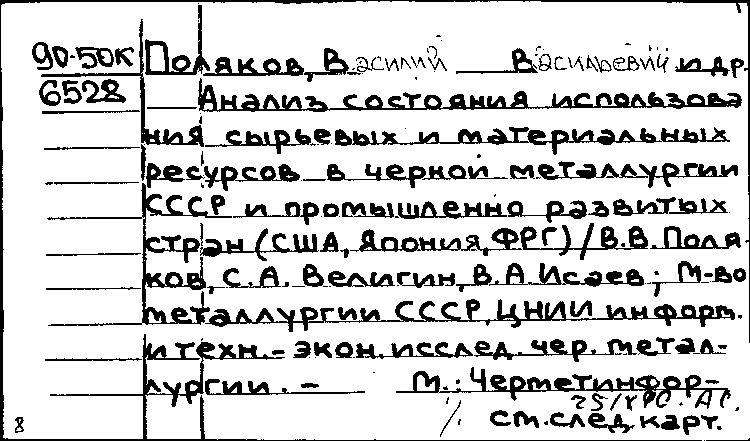 90-50К Поляков, Василий Васильевич и др.
6528 Анализ состояния использова
ния сырьевых и материальных
ресурсов в черной металлургии
СССР и промышленно развитых
стран (США, Япония, ФРГ) / В.В. Поля-
ков, С.А. Велигин, В.А. Исаев; М-во
металлургии СССР, ЦНИИ информ.
и техн.-экон. исслед. чер. метал-
лургии. - М.: Черметинфор-
8 см. след. карт.